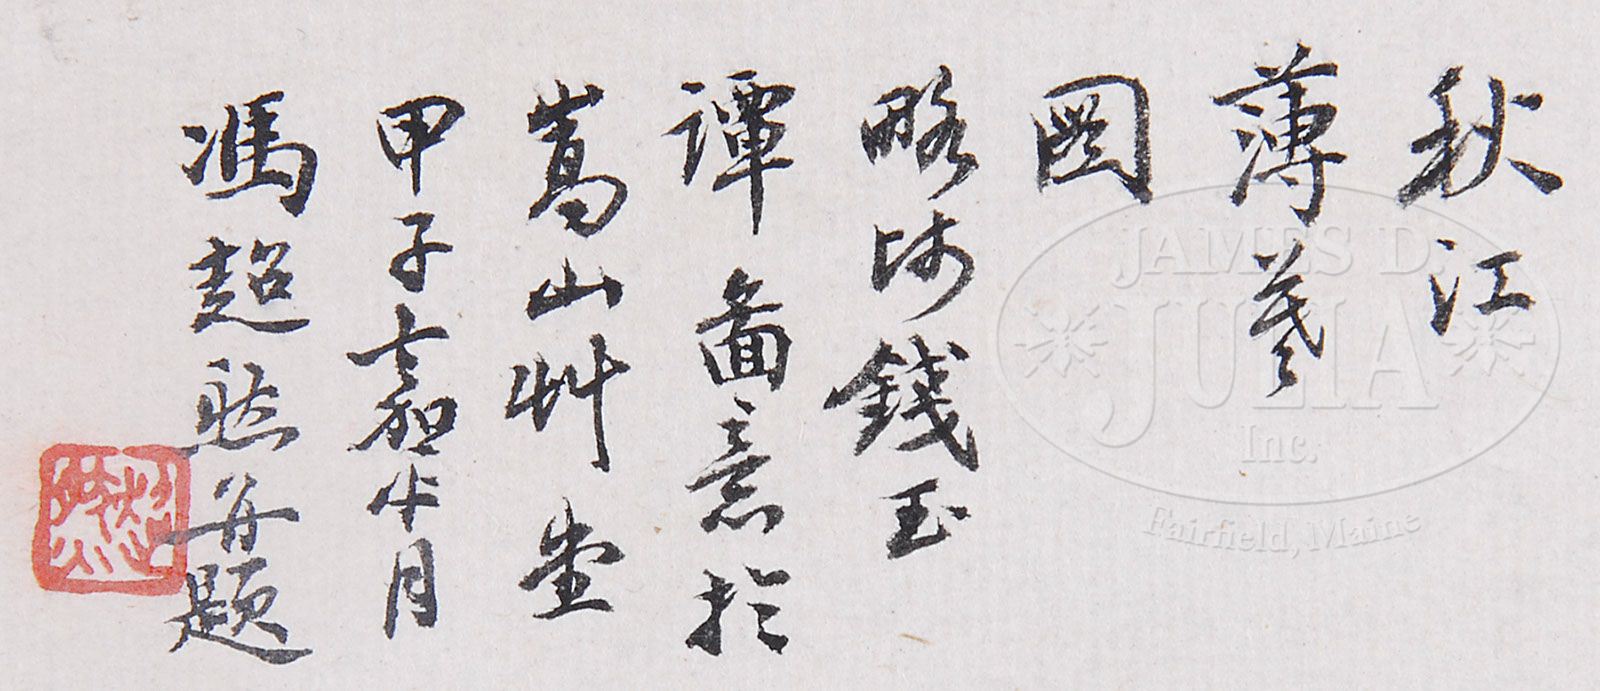 秋江
薄暮
圖
略師錢玉
譚意於
嵩山艸堂
甲子嘉平月
馮超然并題
超然
JAMES D.
JULIA
Inc.
Fairfield, Maine